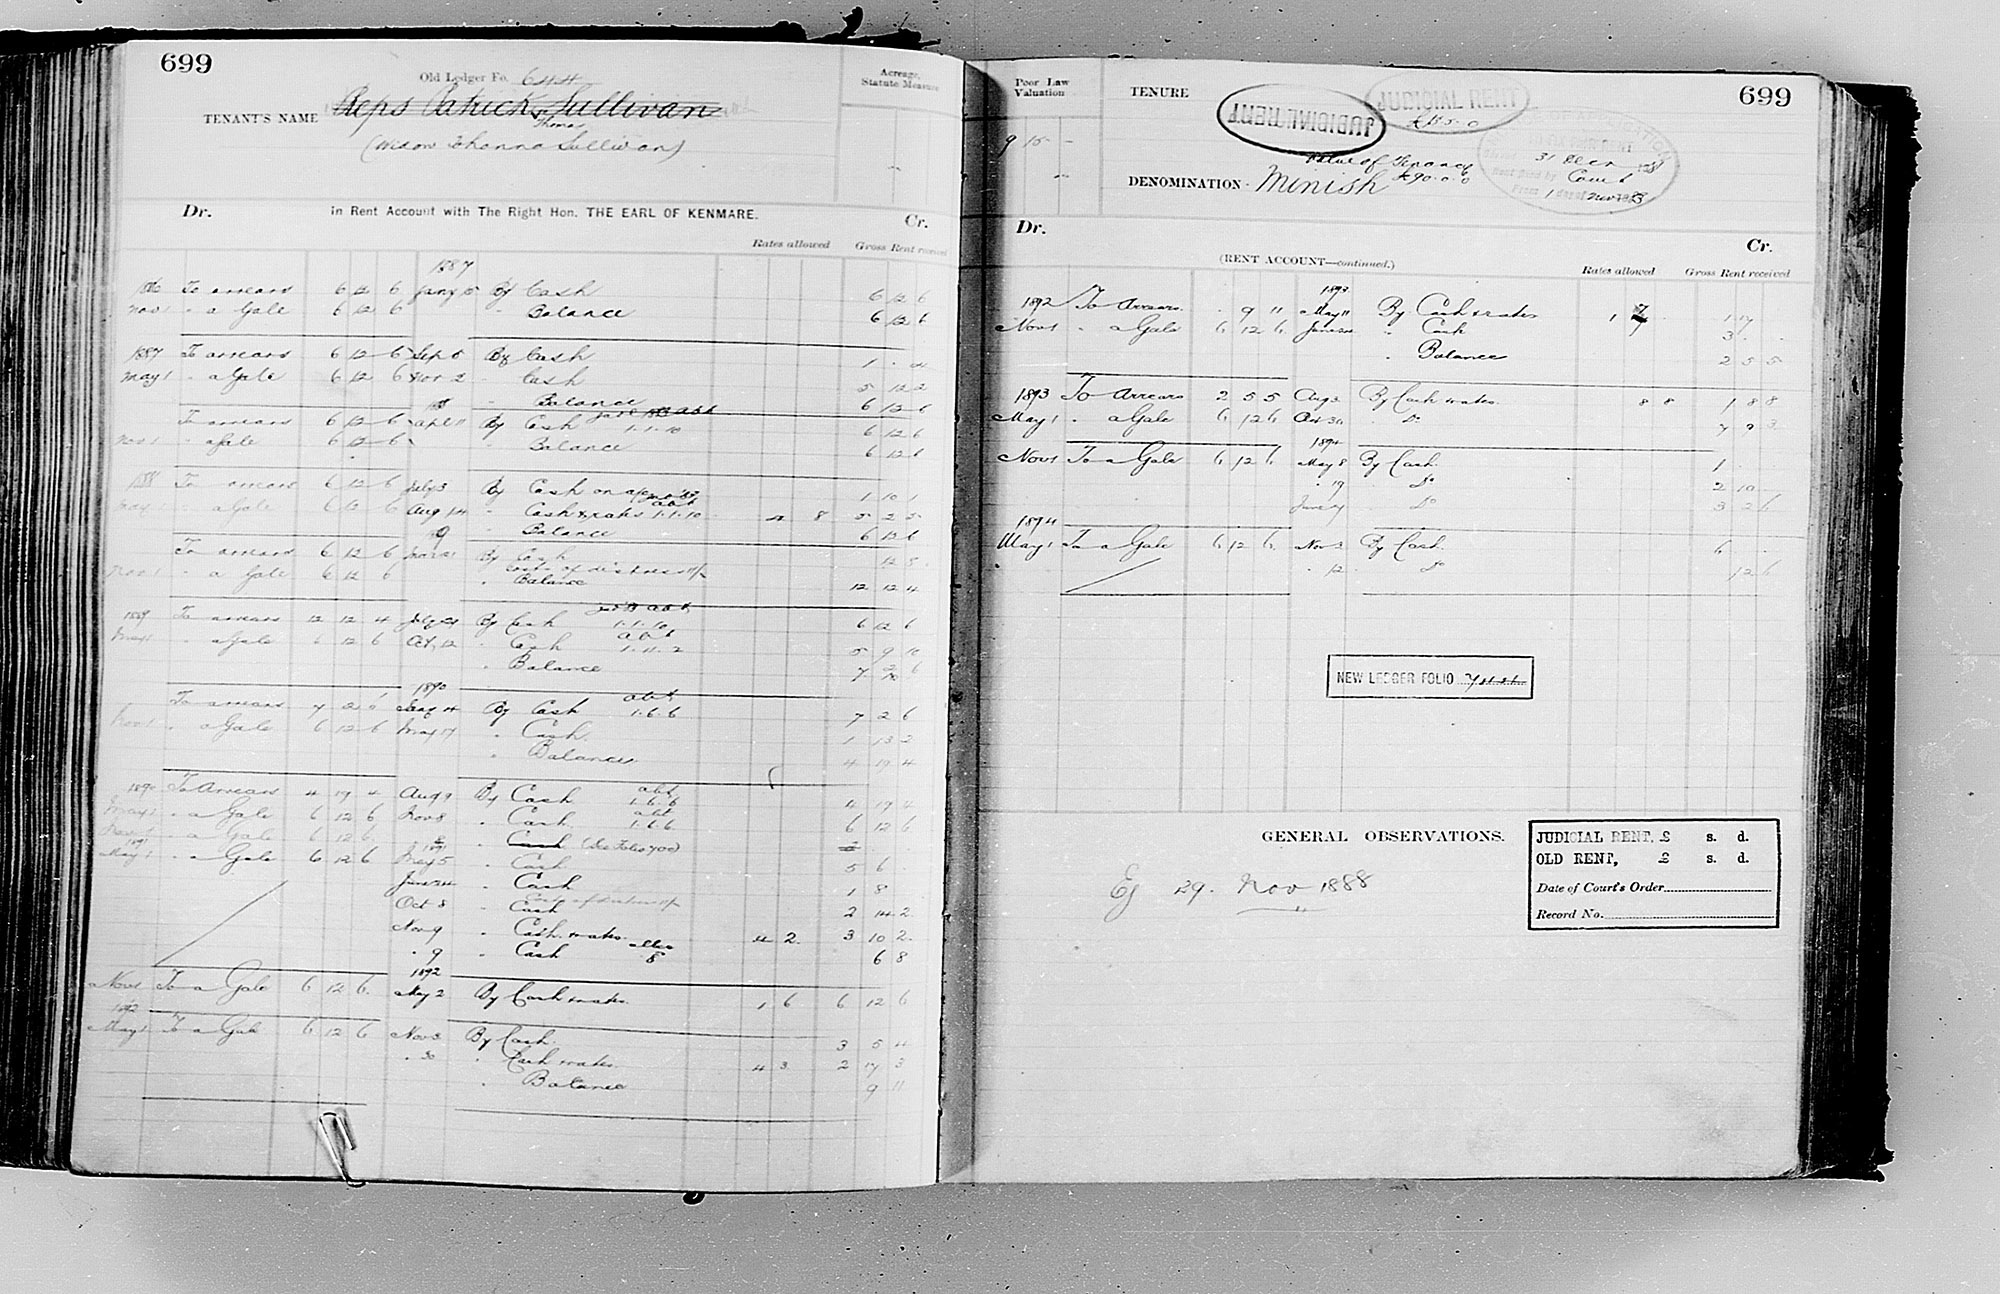 699
Old Ledger Fo. 644
TENANT'S NAME Reps Patrick Sullivan
Thomas
(Widow Johanna Sullivan)
Acreage, Statute Measure
Dr. in Rent Account with The Right Hon. THE EARL OF KENMARE. Cr.
Rates allowed Gross Rent received
1887
To arrears 6 12 6 Jany By Cash 6 12 6
Nov 1 " a Gale 6 12 6 " Balance 6 12 6
1887 To arrears 6 12 6 Sep By Cash 1
May 1 " a Gale 6 12 6 Nov 2 " Cash 5 12 2
" Balance 6 12 6
To arrears 6 12 6 Apl 11 By Cash 1.1.10 6 12 6
Nov 1 " a Gale 6 12 6 " Balance 6 12 6
1888 To arrears 6 12 6 July 3 By Cash on a/c 1 10 1
May 1 " a Gale 6 12 6 Aug 14 " Cash & rates 1.1.10 4 8 5 2 5
" Balance 6 12 6
To arrears 6 12 6 By Cash 12 5
Nov 1 " a Gale 6 12 6 Costs of distress
" Balance 12 12 4
1889 To arrears 12 12 4 July By Cash 1.1.10 6 12 6
May 1 " a Gale 6 12 6 Oct 12 " Cash 1.11.2 5 9 10
" Balance 7 2 6
1890 abt
To arrears 7 2 6 By Cash 1.6.6 7 2 6
Nov 1 " a Gale 6 12 6 May 17 " Cash 1 13 2
" Balance 4 19 4
abt
1890 To Arrears 4 19 4 Aug 9 By Cash 1.6.6 4 19 4
abt
May 1 " a Gale 6 12 6 Nov 8 " Cash 1.6.6 6 12 6
Nov 1 " a Gale 6 12 6 " Cash (See Folio 700)
1891
May 1 " a Gale 6 12 6 May 5 " Cash 5 6
June 24 " Cash 1 8
Oct 8 " Cash 2 14 2
Nov 9 " Cash & rates 4 2 3 10 2
" 9 " Cash 6 8
1892
Nov 1 To a Gale 6 12 6 May 2 By Cash & rates 1 6 6 12 6
1892
May 1 To a Gale 6 12 6 Nov 3 By Cash 3 5 4
" 30 " Cash & rates 4 3 2 17 3
" Balance 9 11
Poor Law Valuation
9 15 -
TENURE
JUDICIAL RENT
JUDICIAL RENT
699
31 Decr
Court
1 Nov
Value of Tenancy
£90.0.0
DENOMINATION Minish
Dr. Cr.
(RENT ACCOUNT—continued.)
Rates allowed Gross Rent received
1893
1892 To Arrears 9 11 May 11 By Cash & rates 1 7 1 17
Nov 1 " a Gale 6 12 6 June 24 " Cash 3 . .
" Balance 2 5 5
1893 To Arrears 2 5 5 Aug 2 By Cash & rates 8 8 1 8 8
May 1 " a Gale 6 12 6 Oct 30 " Do 7 9 3
1894
Nov 1 To a Gale 6 12 6 May 8 By Cash 1
" 19 " Do 2 10
June 7 " Do 3 2 6
1894
May 1 To a Gale 6 12 6 Nov 2 By Cash 6
" 12 " Do 12 6
NEW LEDGER FOLIO
GENERAL OBSERVATIONS.
Ej 29. Nov 1888
JUDICIAL RENT, £ s. d.
OLD RENT, £ s. d.
Date of Court's Order
Record No.